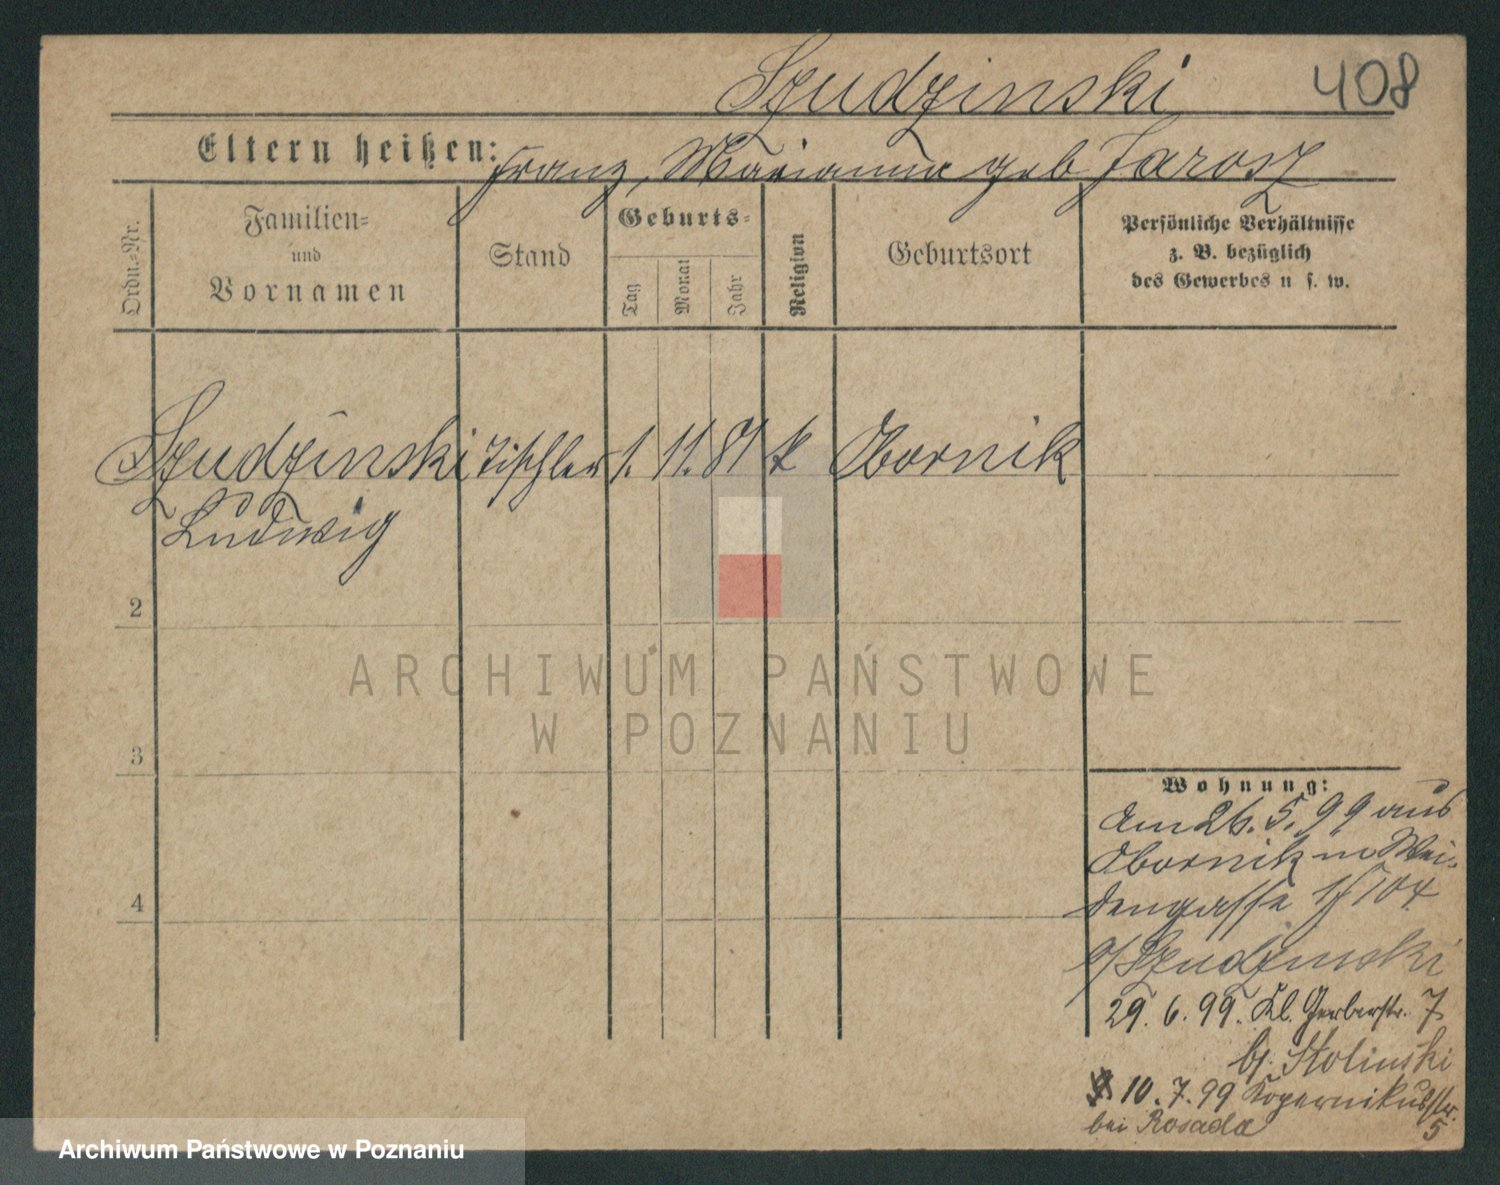 Szudzinski 408
Eltern heißen: Franz, Marianna geb Jarosz
Ordn.-Nr.
Familien-
und
Vornamen
Stand
Geburts-
Tag
Monat
Jahr
Religion
Geburtsort
Persönliche Verhältnisse
z. B. bezüglich
des Gewerbes u s. w.
Szudzinski Tischler 1. 11. 81 k Obornik
Ludwig
2
3
4
ARCHIWUM PAŃSTWOWE
W POZNANIU
Wohnung:
Am 26.5.99 aus
Obornik in Wei-
dengasse
b/ Szudzinski
29.6.99. Kl. Gerberstr. 7
bj. Stolinski
10.7.99 Kopernikusstr.
5
bei Rosada
Archiwum Państwowe w Poznaniu